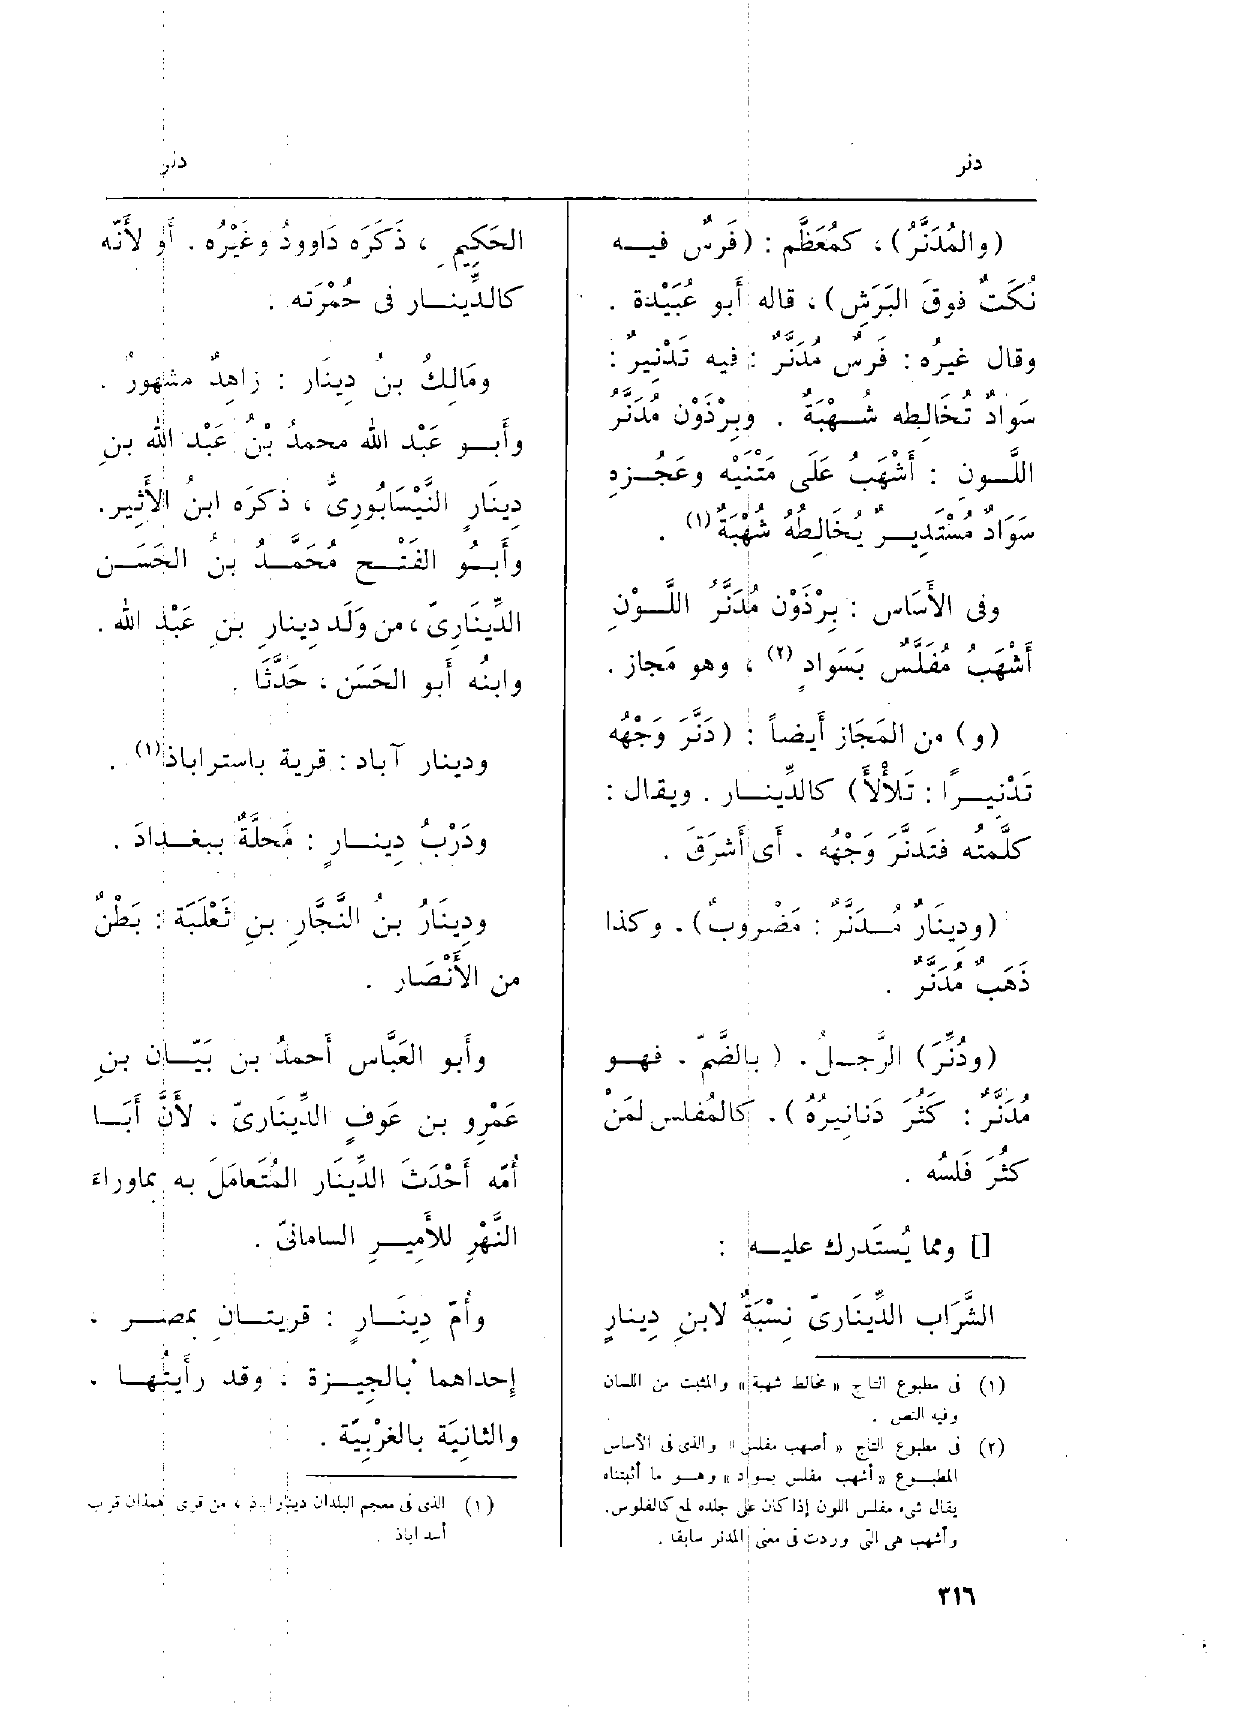 دنر
دنر
(والمُدَنَّرُ)، كمُعَظَّم : (فَرَسٌ فيــه
نُكَتٌ فوقَ البَرَشِ)، قاله أَبو عُبَيْدة .
وقال غيرُه : فَرَسٌ مُدَنَّرٌ : فيه تَدْنِيرٌ :
سَوَادٌ تُخَالِطه شُــهْبَةٌ . وبِرْذَوْن مُدَنَّرُ
اللَّــون : أَشْهَبُ عَلَى مَتْنَيْه وعَجُــزِه
سَوَادٌ مُسْتَدِيــرٌ يُخَالِطُه شُهْبَةٌ(١) .
وفى الأَسَاس : بِرْذَوْن مُدَنَّرُ اللَّــوْنِ
أَشْهَبُ مُفَلَّسٌ بَسَوادٍ(٢) ، وهو مَجاز .
(و) من المَجَاز أَيضاً : (دَنَّرَ وَجْهُه
تَدْنِيــرًا : تَلأْلأَ) كالدِّينــار . ويقال :
كلَّمتُه فتَدنَّرَ وَجْهُه . أَى أَشرَقَ .
(ودِينَارٌ مُــدَنَّرٌ : مَضْروبٌ). وكذا
ذَهَبٌ مُدَنَّرٌ .
(ودُنِّرَ) الرَّجــلُ . ( بالضَّمّ . فهــو
مُدَنَّرٌ : كَثُرَ دَنَانِيرُهُ ). كالمُفَلَّس لمَنْ
كَثُرَ فَلسُه .
[] ومما يُسْتَدرك عليــه :
الشَّرَاب الدِّينَارىّ نِسْبَةٌ لابنِ دِينارٍ
(١) فى مطبوع التاج « مخالط شهبة » والمثبت من اللسان
وفيه النص .
(٢) فى مطبوع التاج « أصهب مفلس » والذى فى الأساس
المطبــوع « أشهب مفلس بسواد » وهــو ما أثبتناه
يقال شىء مفلس اللون إذا كان على جلده لمع كالفلوس.
وأشهب هى التى وردت فى معنى المدنر سابقا .
الحَكِيمِ ، ذَكَرَه دَاوودُ وغَيْرُه . أَو لأَنَّه
كالدِّينــار فى حُمْرَته .
ومَالِكُ بنُ دِينَار : زاهدٌ مشهورٌ .
وأَبــو عَبْد الله محمدُ بْنُ عَبْد الله بنِ
دِينَارٍ النَّيْسَابُورِىُّ ، ذكرَه ابنُ الأَثير.
وأَبُــو الفَتْــحِ مُحَمَّــدُ بنُ الحَسَــن
الدِّينَارِىّ ، من وَلَد دِينارِ بنِ عَبْد الله .
وابنُه أَبو الحَسَن ، حَدَّثَا .
ودينار آباد : قرية باستراباذ(١) .
ودَرْبُ دِينــارٍ : مَحلَّةٌ ببغــدادَ .
ودِينَارُ بنُ النَّجَّارِ بنِ ثَعْلَبَة : بَطْنٌ
من الأَنْصَار .
وأَبو العَبَّاس أَحمدُ بن بَيَــان بنِ
عَمْرِو بن عَوفٍ الدِّينَارىّ . لأَنَّ أَبَــا
أُمّه أَحْدَثَ الدِّينَار المُتَعامَلَ به بماوراءَ
النَّهْرِ للأَميــر السامانىّ .
وأُمّ دِينَــارٍ : قريتــان بمصــر .
إِحداهما بالجِيــزة . وقد رأَيتُهــا .
والثانِيَة بالغَرْبِيّة .
(١) الذى فى معجم البلدان ديناراباذ ، من قرى همذان قرب
أسد اباذ .
٣١٦